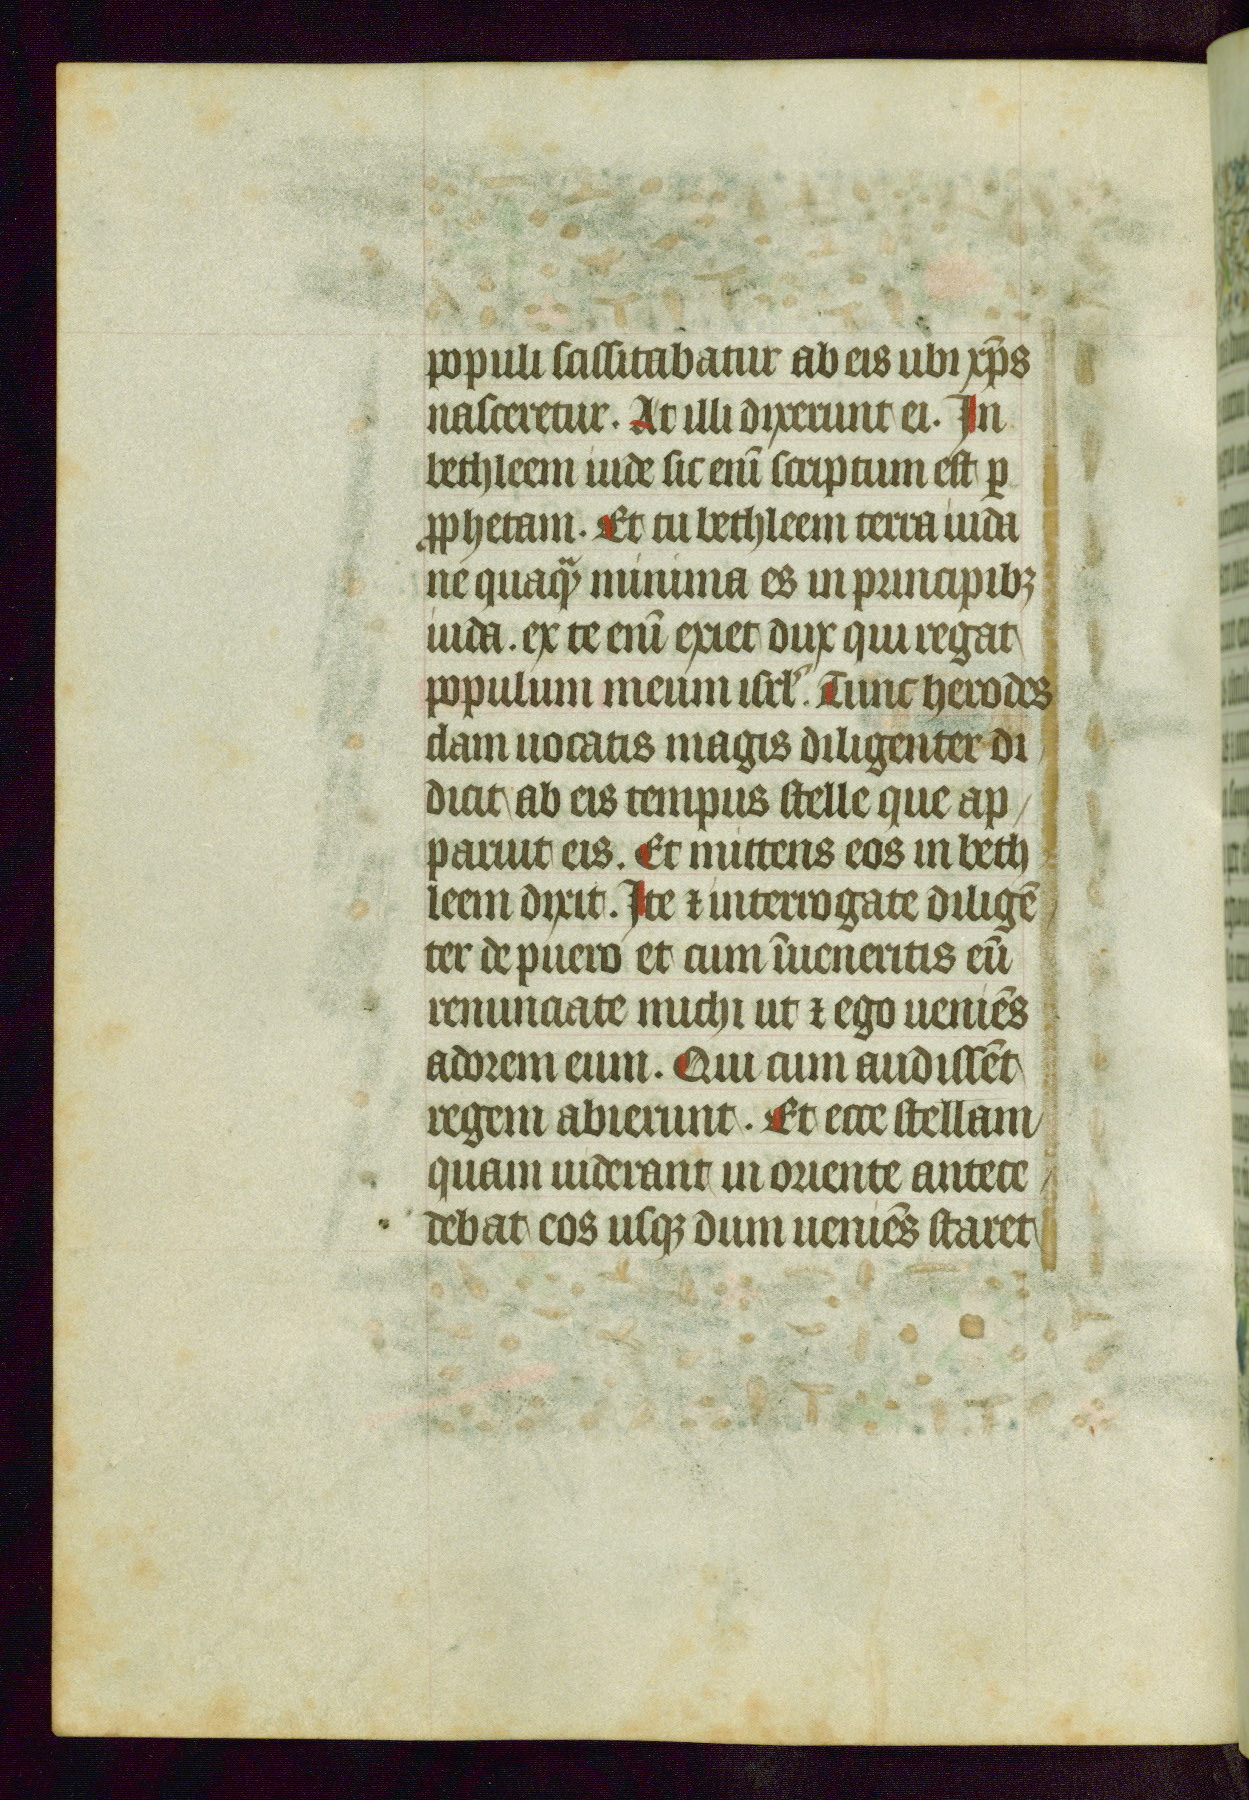 populi scissitabatur ab eis ubi xp̄s
nasceretur. At illi dixerunt ei. In
bethleem iude sic eni̅ scriptum est ꝑ
ꝓphetam. Et tu bethleem terra iuda
ne quaqᷓ minima es in principibꝫ
iuda. ex te eni̅ exiet dux qui regat
populum meum isrl̛. Tunc herodes
clam uocatis magis diligenter di
dicit ab eis tempus stelle que ap
paruit eis. Et mittens eos in beth
leem dixit. Ite ⁊ interrogate diligē
ter de puero et cum i̅ueneritis eū
renunciate michi ut ⁊ ego ueniēs
adorem eum. Qui cum audissēt
regem abierunt. Et ecce stellam
quam uiderant in oriente antece
debat eos usqꝫ dum ueniēs staret